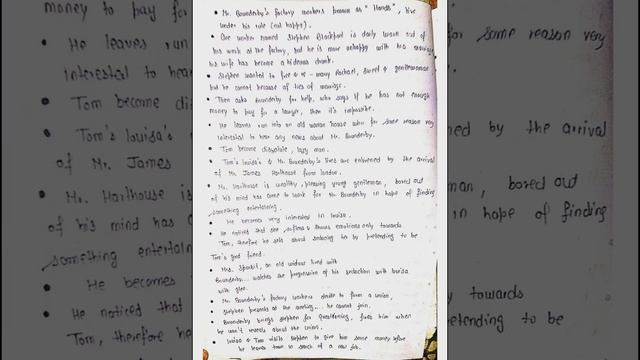 money to pay for
He leaves run
interested to hear
Tom become dis
Tom's louisa's
of Mr. James
Mr. Harthouse is
of his mind has
something entertain
He becomes
He noticed that
Tom, therefore he
• Mr. Bounderby's factory workers known as "Hands", live
under his rule (not happy).
• One worker named Stephen Blackpool is daily worn out of
his work at the factory, but he is more unhappy with his marriage
his wife has become a hideous drunk.
• Stephen wanted to free & re-marry Rachael, sweet & gentlewoman
but he cannot because of ties of marriage.
• Then asks Bounderby for help, who says if he has not enough
money to pay for a lawyer, then it's impossible.
• He leaves run into an old woman house who for some reason very
interested to hear any news about Mr. Bounderby.
• Tom become dissolute, lazy man.
• Tom's louisa's & Mr. Bounderby's lives are enlivened by the arrival
of Mr. James Harthouse from london.
• Mr. Harthouse is wealthy, pleasing young gentleman, bored out
of his mind has come to work for Mr. Bounderby in hope of finding
something entertaining.
• He becomes very interested in louisa.
• He noticed that she softens & shows emotions only towards
Tom, therefore he sets about seducing her by pretending to be
Tom's good friend.
• Mrs. Sparsit, an old widow lived with
Bounderby... watches the progression of his seduction with louisa
with glee.
• Mr. Bounderby's factory workers decide to form a union,
Stephen presents at the meeting... he cannot join.
• Bounderby brings Stephen for questioning, fires him when
he won't reveals about the union.
• Louisa & Tom visits Stephen to give him some money before
he leaves town in search of a new job.
for some reason very
by the arrival
man, bored out
in hope of finding
towards
pretending to be